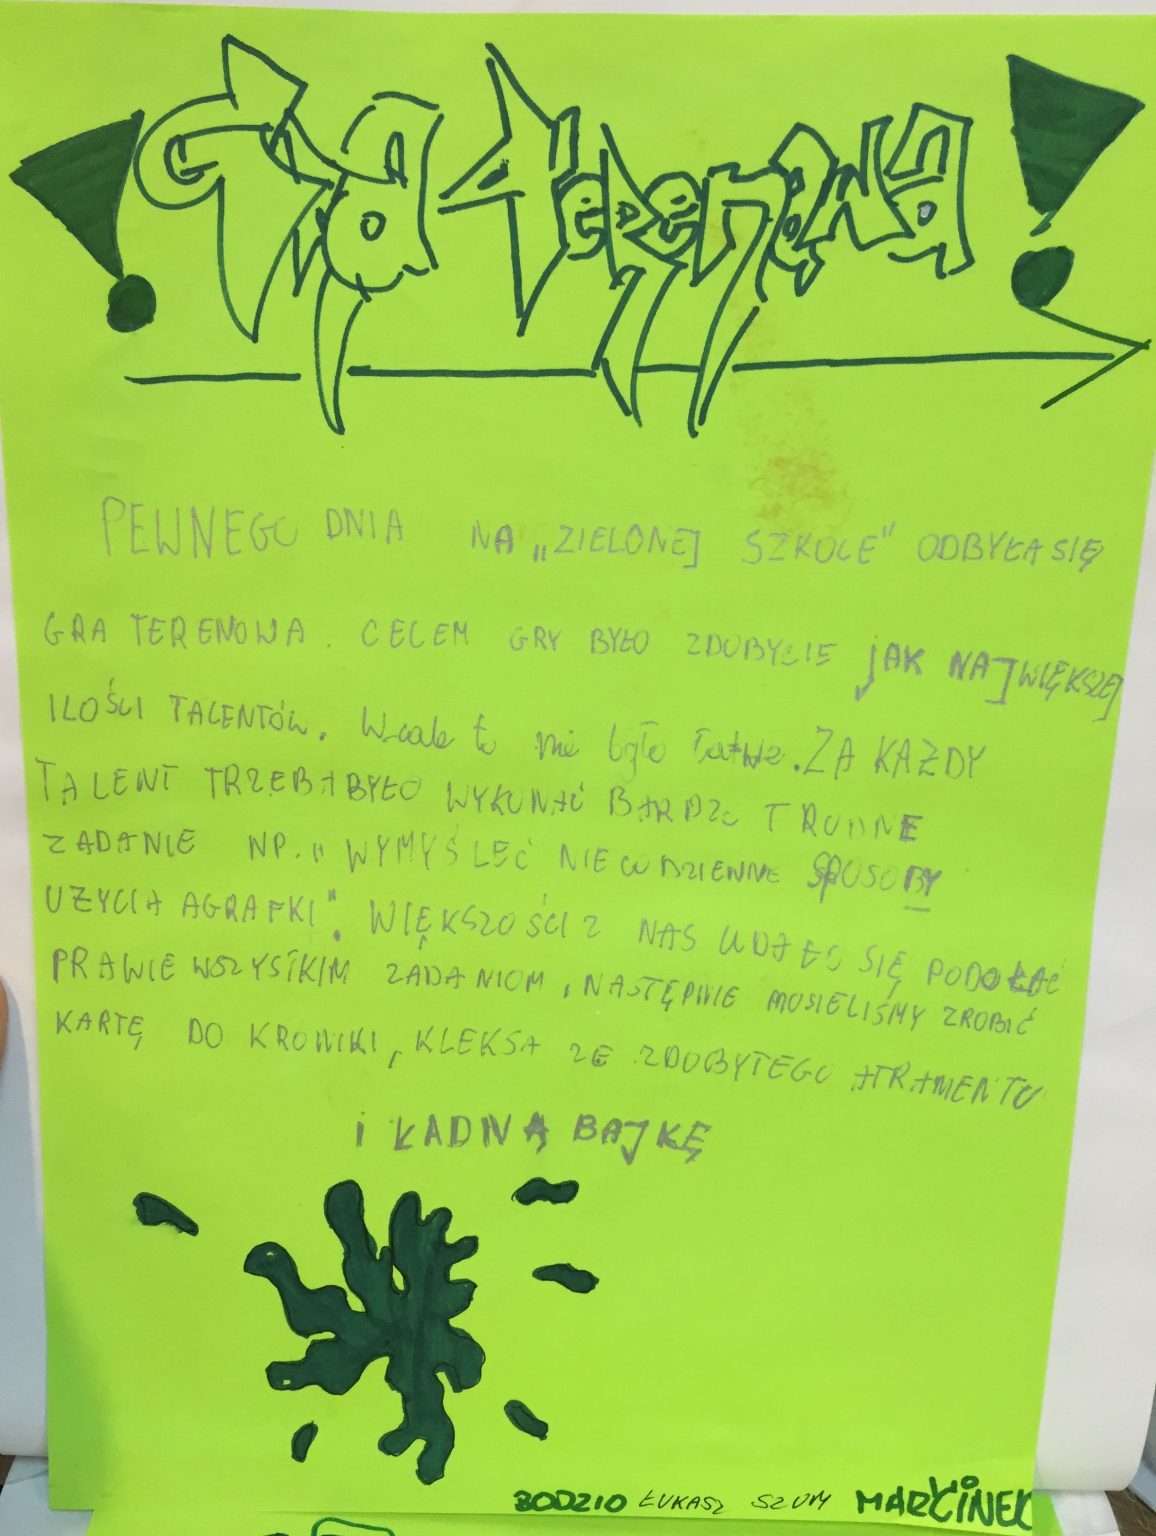 ! Gra terenowa !
PEWNEGO DNIA NA „ZIELONEJ SZKOLE" ODBYŁA SIĘ
GRA TERENOWA. CELEM GRY BYŁO ZDOBYCIE JAK NAJWIĘKSZEJ
ILOŚCI TALENTÓW. Wcale to nie było łatwe. ZA KAZDY
TALENT TRZEBA BYŁO WYKONAĆ BARDZO TRUDNE
ZADANIE NP. „WYMYŚLEĆ NIECODZIENNE SPOSOBY
UZYCIA AGRAFKI". WIĘKSZOŚCI Z NAS UDAŁO SIĘ PODOŁAĆ
PRAWIE WSZYSTKIM ZADANIOM, NASTĘPNIE MUSIELIŚMY ZROBIĆ
KARTĘ DO KRONIKI, KLEKSA ZE ZDOBYTEGO ATRAMENTU
i ŁADNĄ BAJKĘ
BODZIO ŁUKASZ SZUM MARCINEK